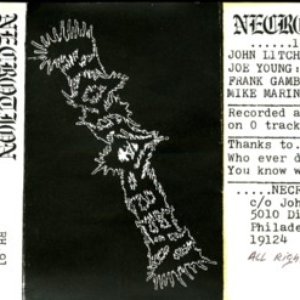 NECROTION
NECRO
JOHN LITCH
JOE YOUNG
FRANK GAMB
MIKE MARIN
Recorded a
on 0 track
Thanks to.
Who ever d
You know w
.....NECR
c/o Joh
5010 Di
Philade
19124
ALL Righ